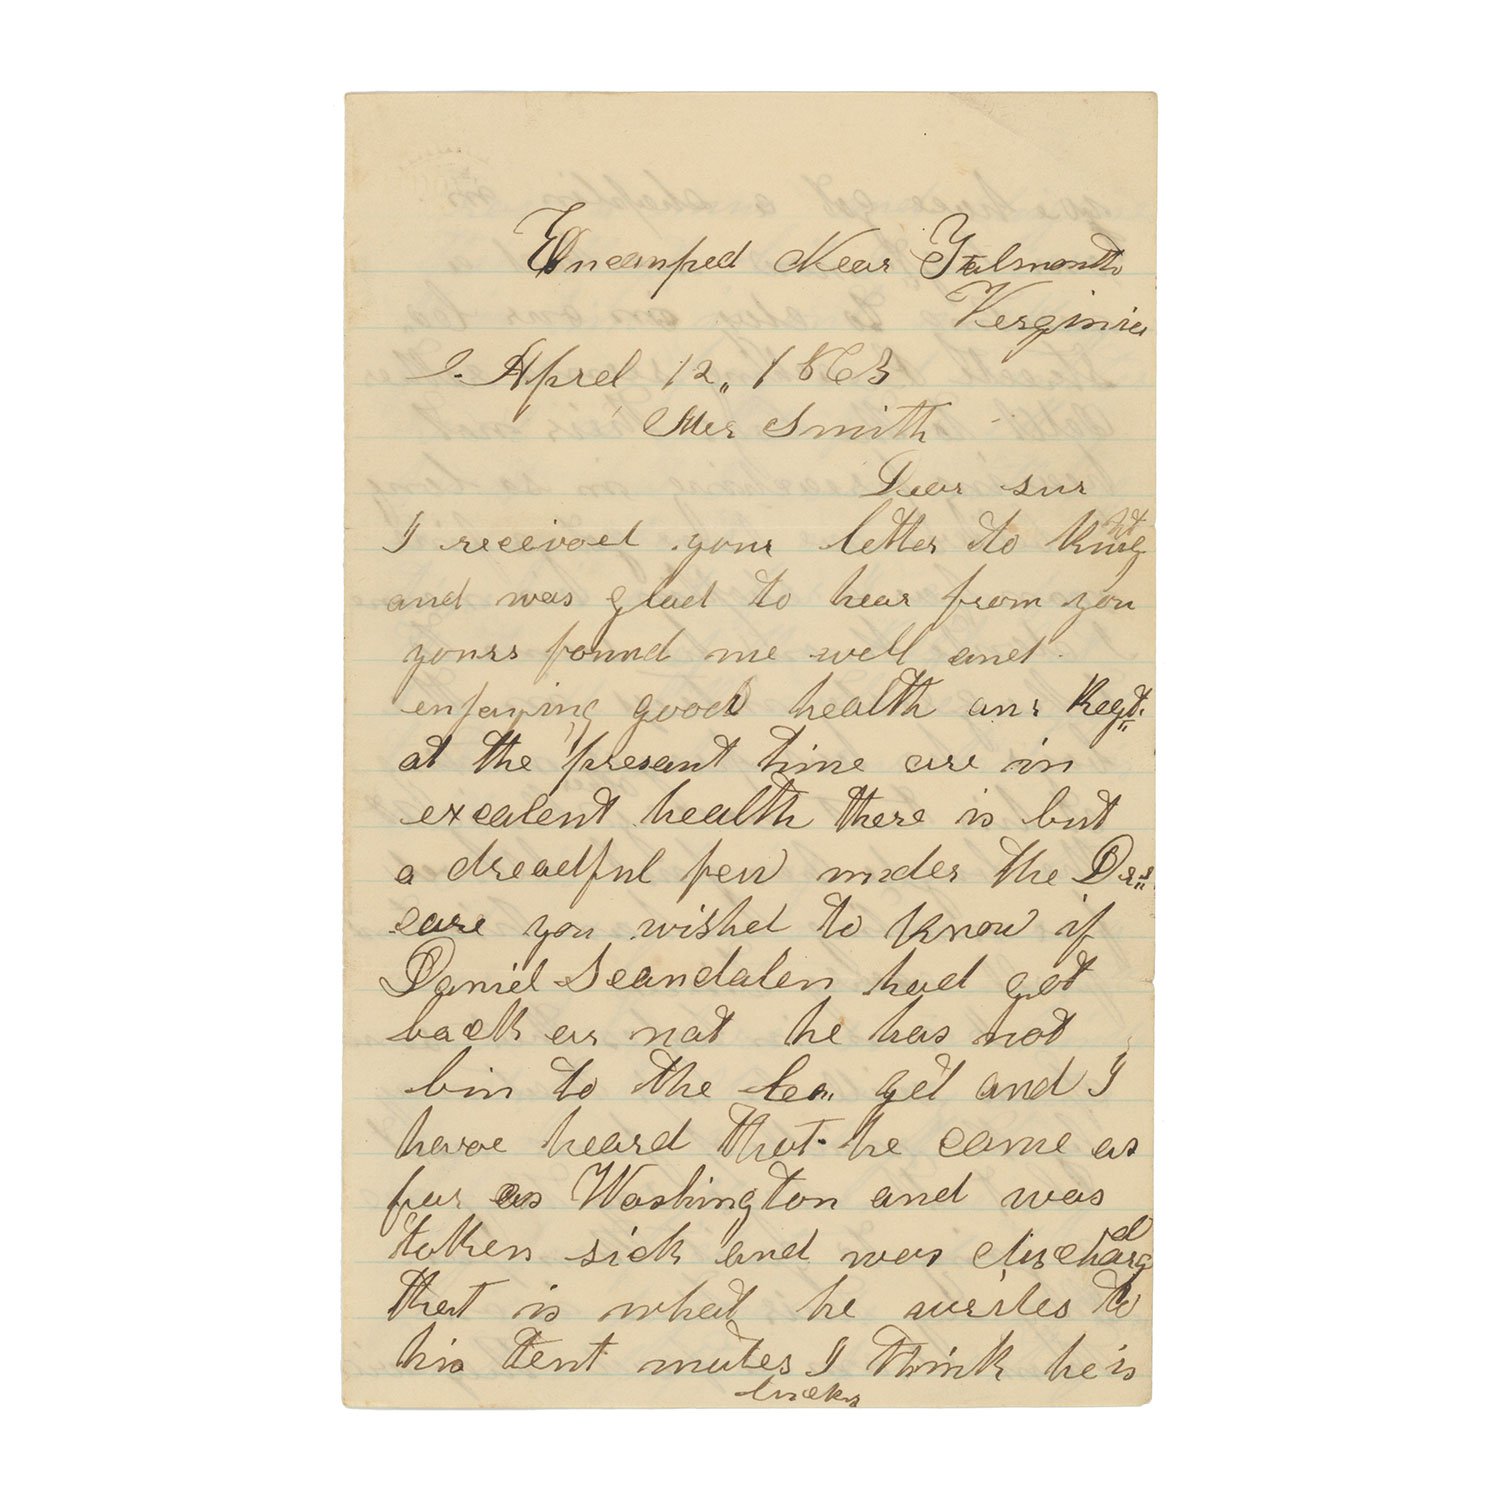 Encamped Near Falmouth
Verginia
Aprel 12,, 1863
Mr Smith
Dear sur
I received your letter to knight
and was glad to hear from you
yours found me well and
enjaying good health our Regt.
at the presant time are in
excalent health there is but
a dreadful few under the Drs,,
care you wished to know if
Daniel Scandalen had got
back or not he has not
bin to the Co,, yet and I
have heard that he came as
far as Washington and was
taken sick and was dischargd
that is what he writes to
his tent mates I think he is
lucky